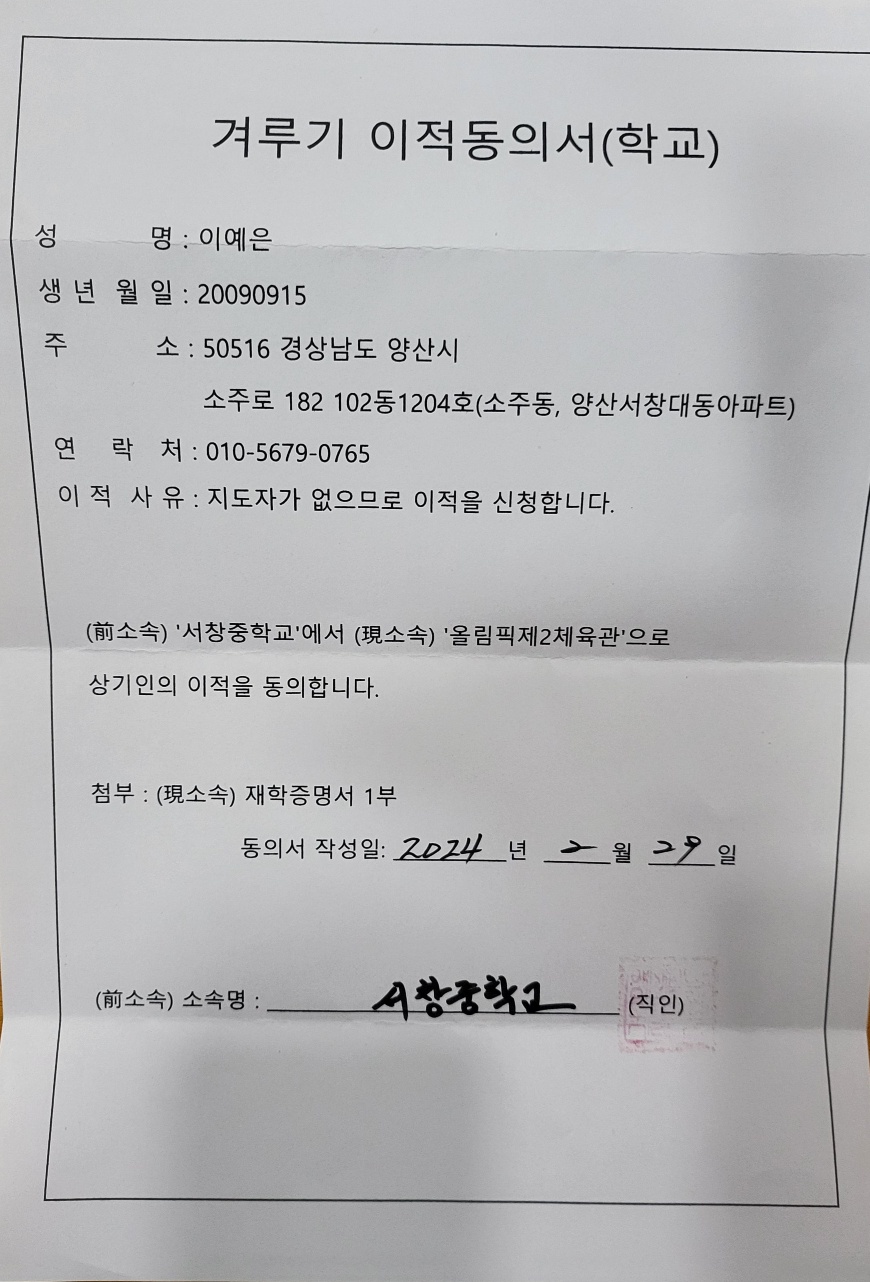 겨루기 이적동의서(학교)
성 명 : 이예은
생 년 월 일 : 20090915
주 소 : 50516 경상남도 양산시
소주로 182 102동1204호(소주동, 양산서창대동아파트)
연 락 처 : 010-5679-0765
이 적 사 유 : 지도자가 없으므로 이적을 신청합니다.
(前소속) '서창중학교'에서 (現소속) '올림픽제2체육관'으로
상기인의 이적을 동의합니다.
첨부 : (現소속) 재학증명서 1부
동의서 작성일: 2024 년 2 월 29 일
(前소속) 소속명 : 서창중학교 (직인)